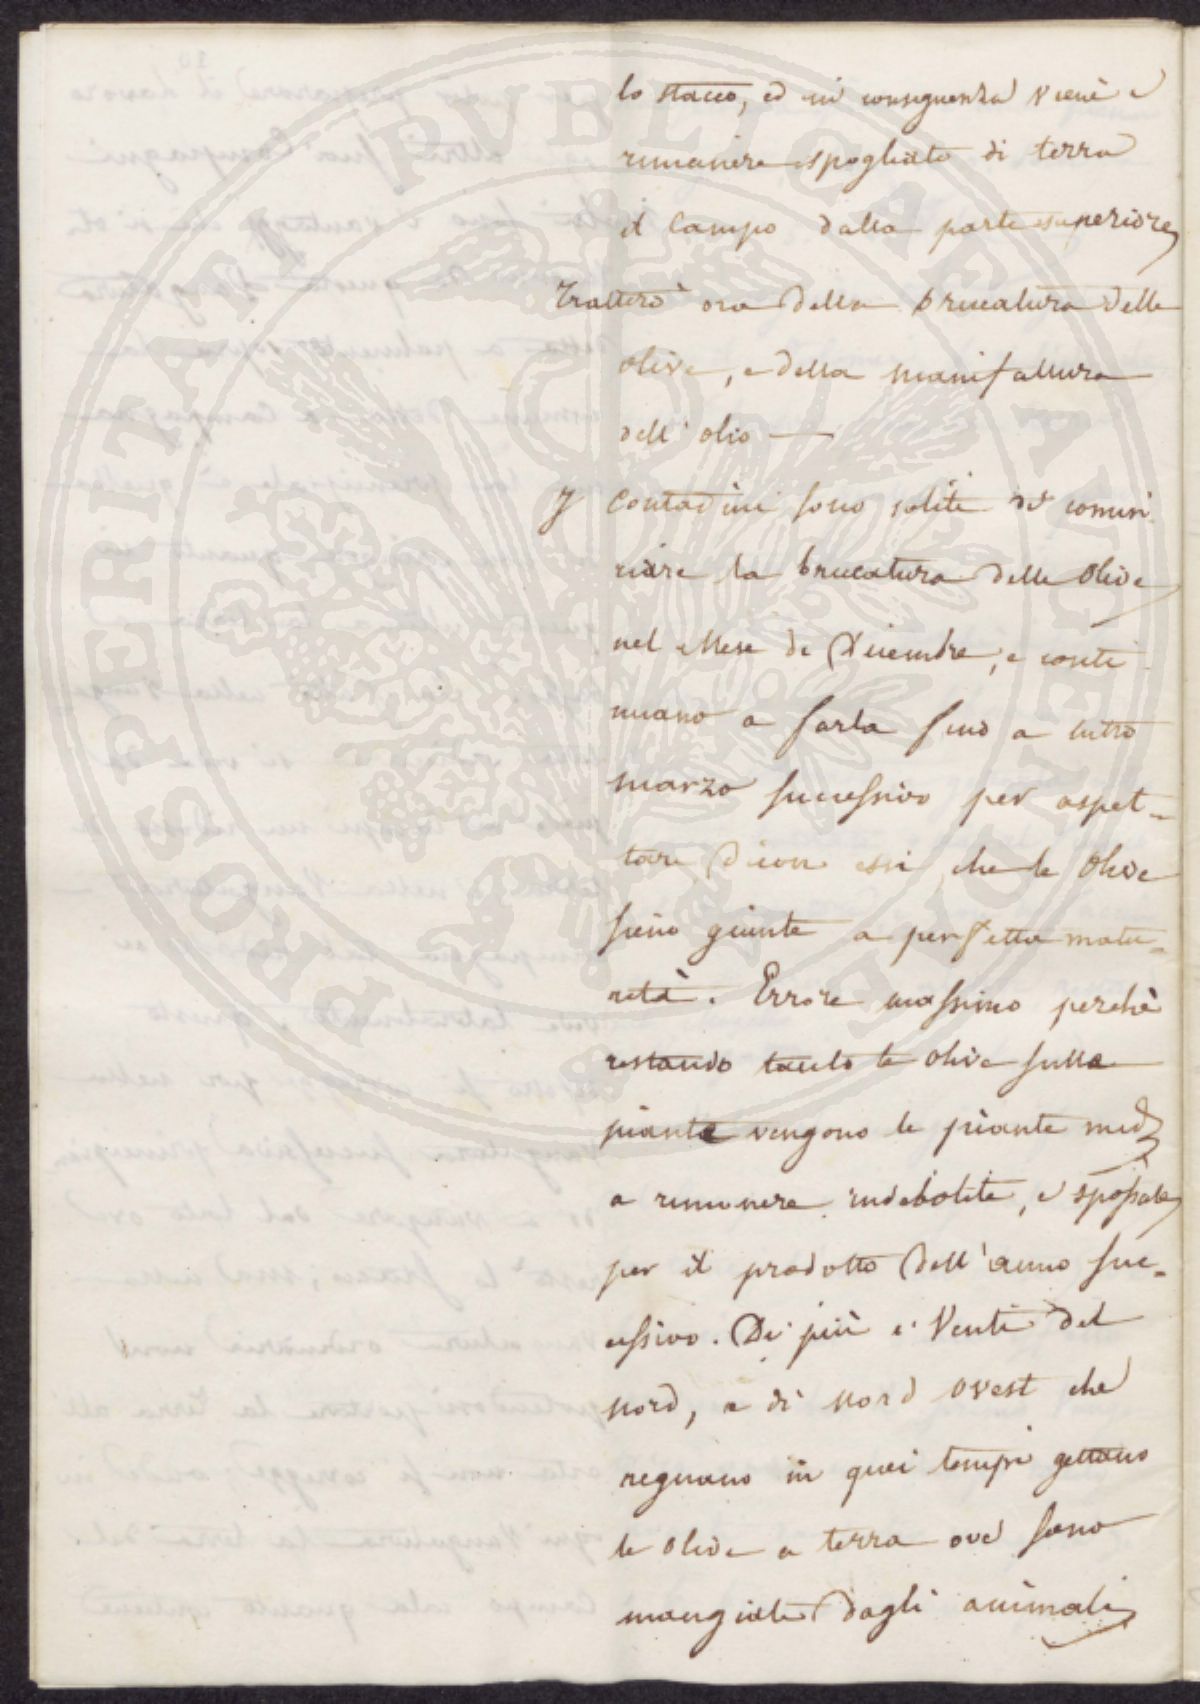 PROSPERITATI PUBLICAE AUGENDAE
lo stacco, ed in conseguenza viene a
rimanere spogliato di terra
il Campo dalla parte superiore
Tratterò ora della brucatura delle
olive, e della manifattura
dell'olio —
I Contadini sono soliti di comin
ciare la brucatura delle Olive
nel Mese di Dicembre, e conti
nuano a farla fino a tutto
marzo successivo per aspet=
tare dicon essi che le Olive
sieno giunte a perfetta matu=
rità. Errore massimo perchè
restando tanto le Olive sulla
pianta vengono le piante med
a rimanere indebolite, e spossate
per il prodotto dell'anno suc=
cessivo. Di più i Venti del
nord, e di nord ovest che
regnano in quei tempi gettano
le Olive a terra ove sono
mangiate dagli animali